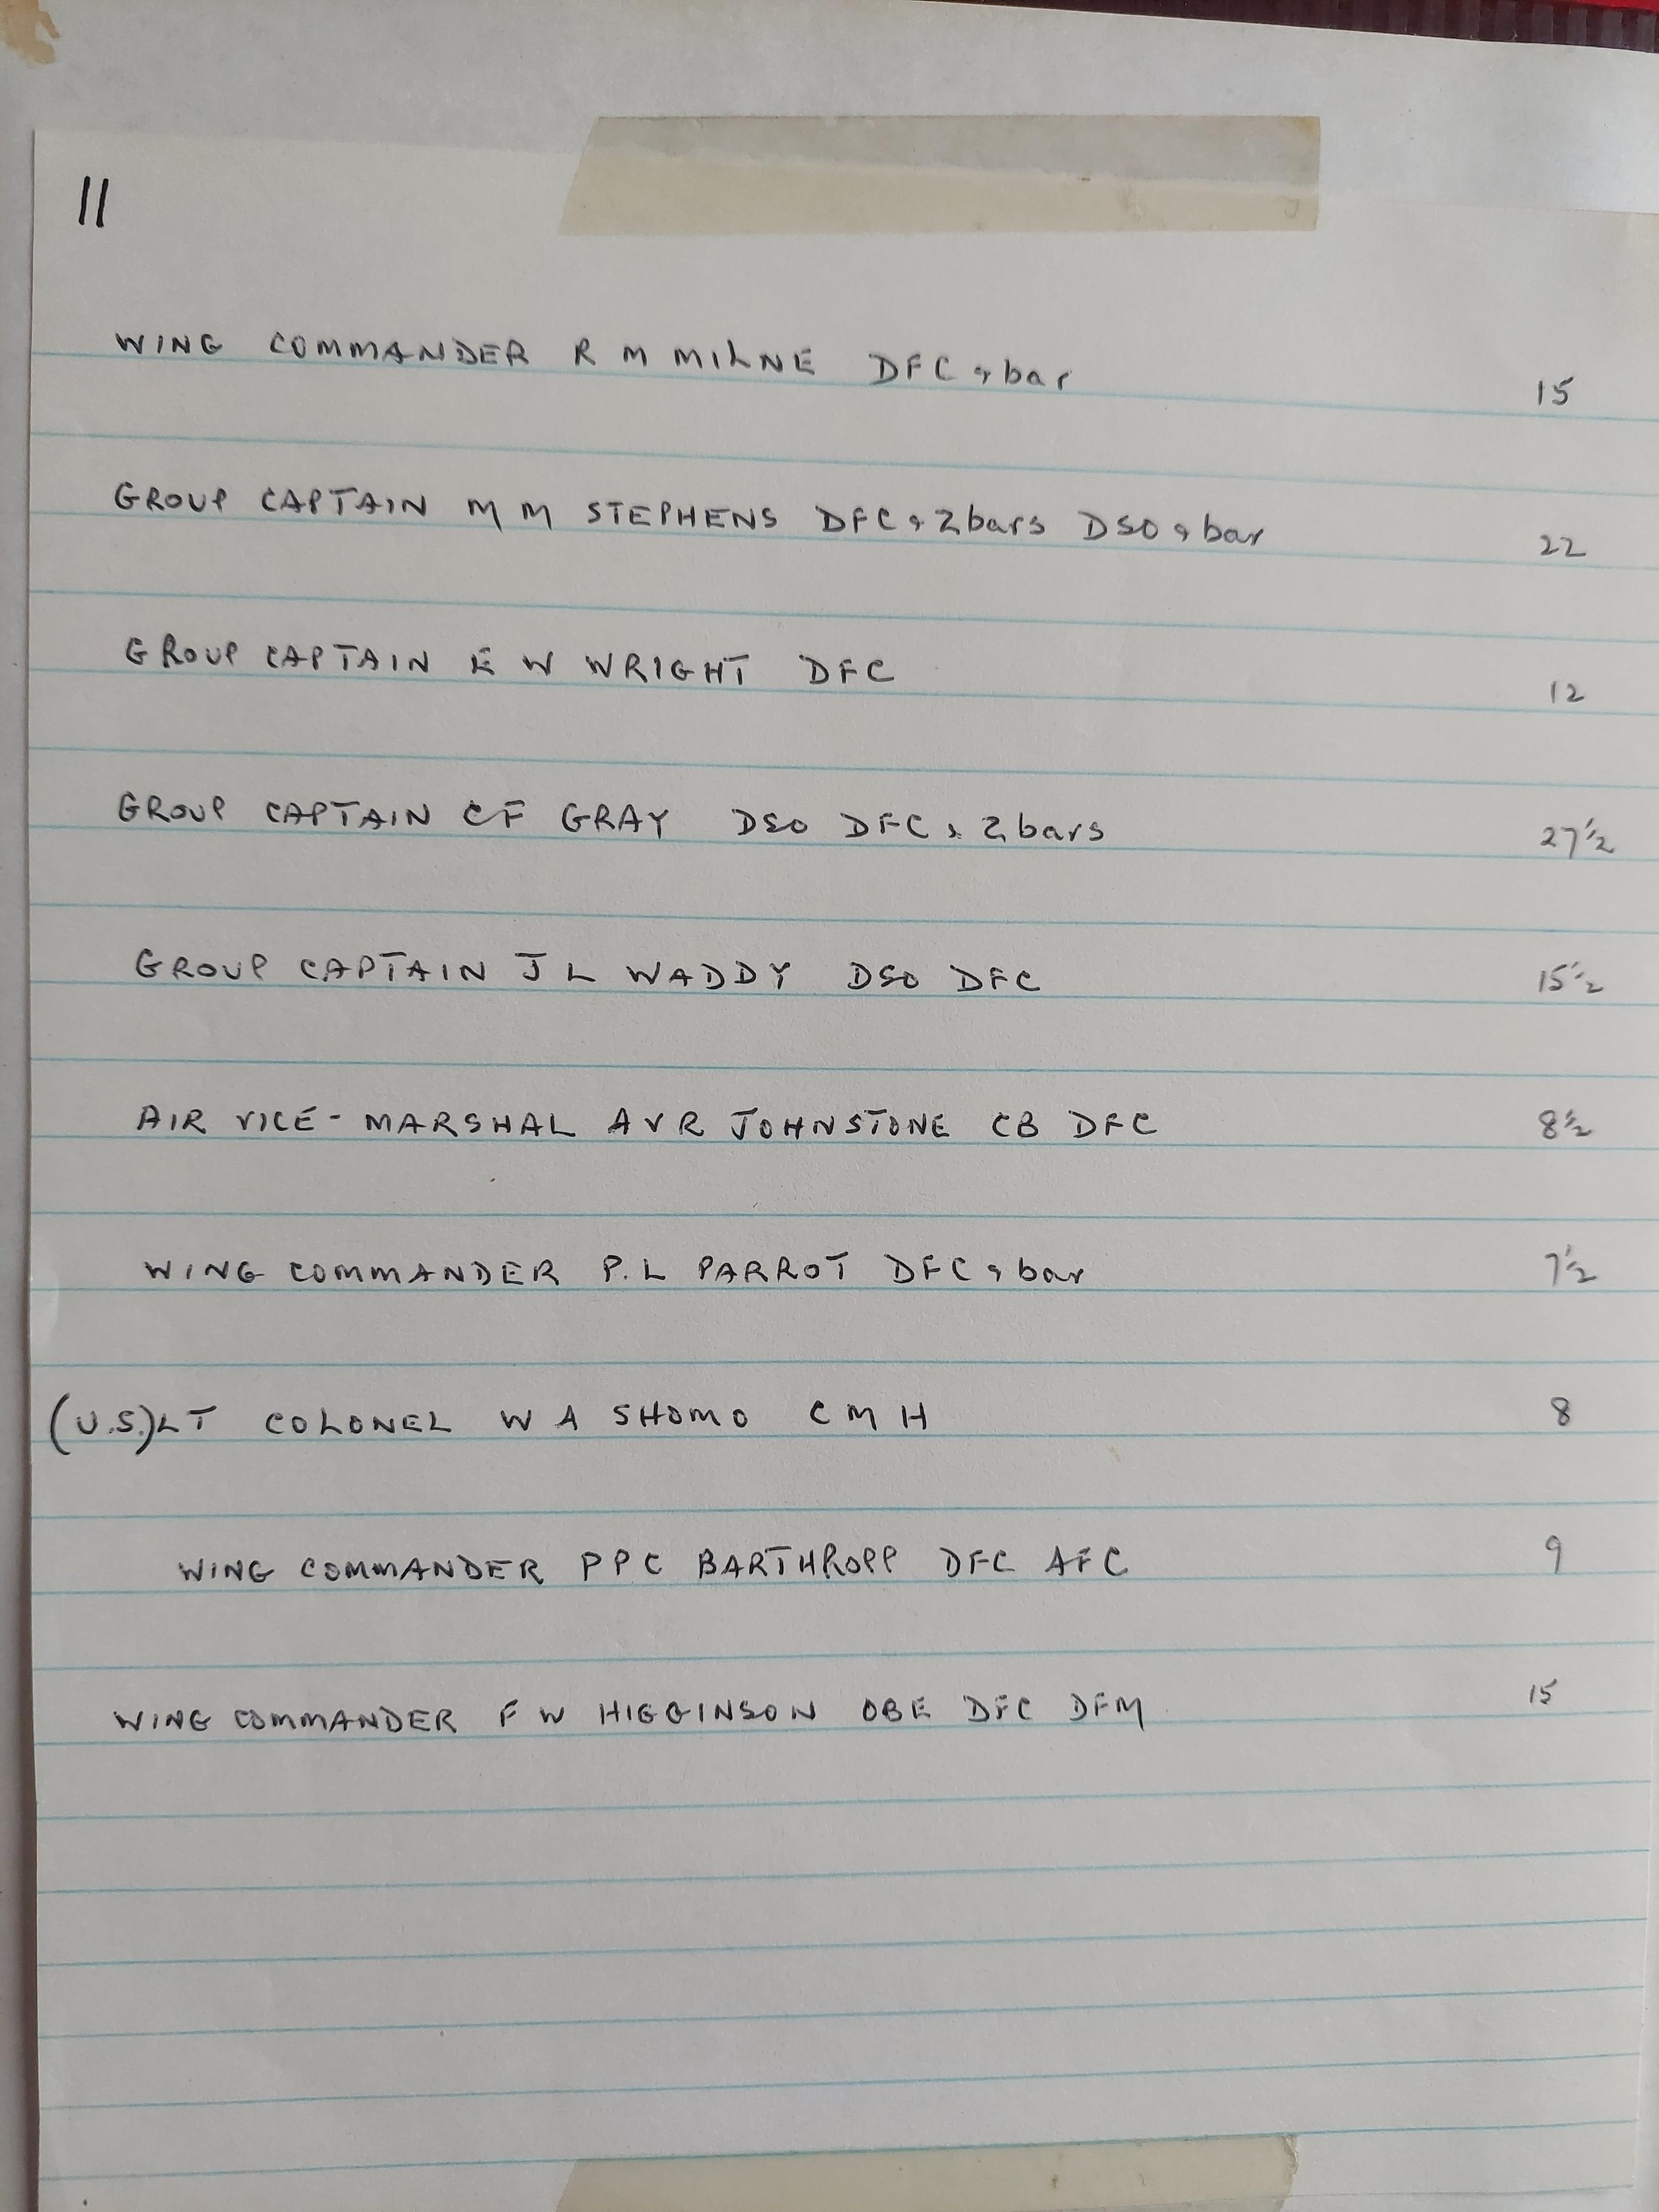 11
WING COMMANDER R M MILNE DFC & bar 15
GROUP CAPTAIN M M STEPHENS DFC & 2 bars DSO & bar 22
GROUP CAPTAIN E W WRIGHT DFC 12
GROUP CAPTAIN CF GRAY DSO DFC & 2 bars 27½
GROUP CAPTAIN J L WADDY DSO DFC 15½
AIR VICE-MARSHAL AVR JOHNSTONE CB DFC 8½
WING COMMANDER P.L PARROT DFC & bar 7½
(U.S.) LT COLONEL W A SHOMO CMH 8
WING COMMANDER PPC BARTHROPP DFC AFC 9
WING COMMANDER F W HIGGINSON OBE DFC DFM 15